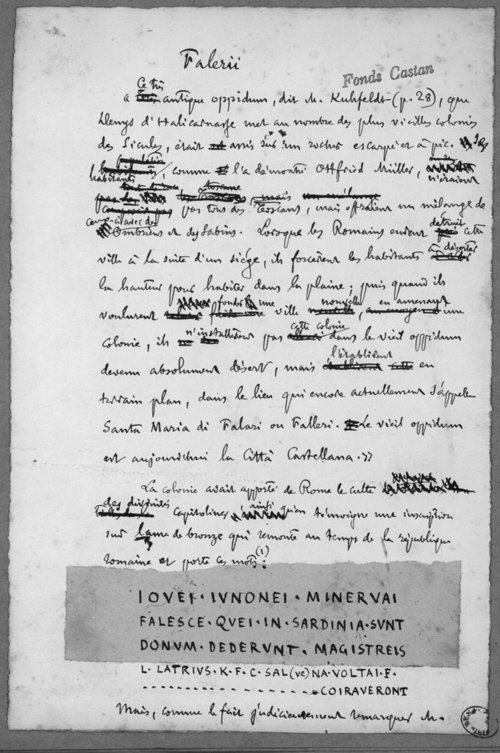 Falerii
Fonds Castan
« Cet antique oppidum, dit M. Kuhfeldt (p. 28), que
Denys d'Halicarnasse met au nombre des plus vieilles colonies
des Sicules, était assis sur un rocher escarpé et à pic. Ses
habitants, comme l'a démontré Ottfried Müller, n'étaient
pas tous des Toscans, mais offraient un mélange de
ceux-ci avec des Ombriens et des Sabins. Lorsque les Romains eurent détruit cette
ville à la suite d'un siège, ils forcèrent les habitants à déserter
la hauteur pour habiter dans la plaine; puis quand ils
voulurent fonder une ville nouvelle, en amenant une
colonie, ils n'installèrent pas cette colonie dans le vieil oppidum
devenu absolument désert, mais l'établirent en
terrain plan, dans le lieu qui encore actuellement s'appelle
Santa Maria di Falari ou Falleri. Le vieil oppidum
est aujourd'hui la Città Castellana. »
La colonie avait apporté de Rome le culte
des divinités Capitolines ainsi qu'en témoigne une inscription
sur lame de bronze qui remonte au temps de la république
romaine et porte ces mots (1):
IOVEI · IVNONEI · MINERVAI
FALESCE · QVEI · IN · SARDINIA · SVNT
DONVM · DEDERVNT · MAGISTREIS
L · LATRIVS · K · F · C · SAL(VE)NA · VOLTAI · F ·
COIRAVERONT
Mais, comme le fait judicieusement remarquer M.